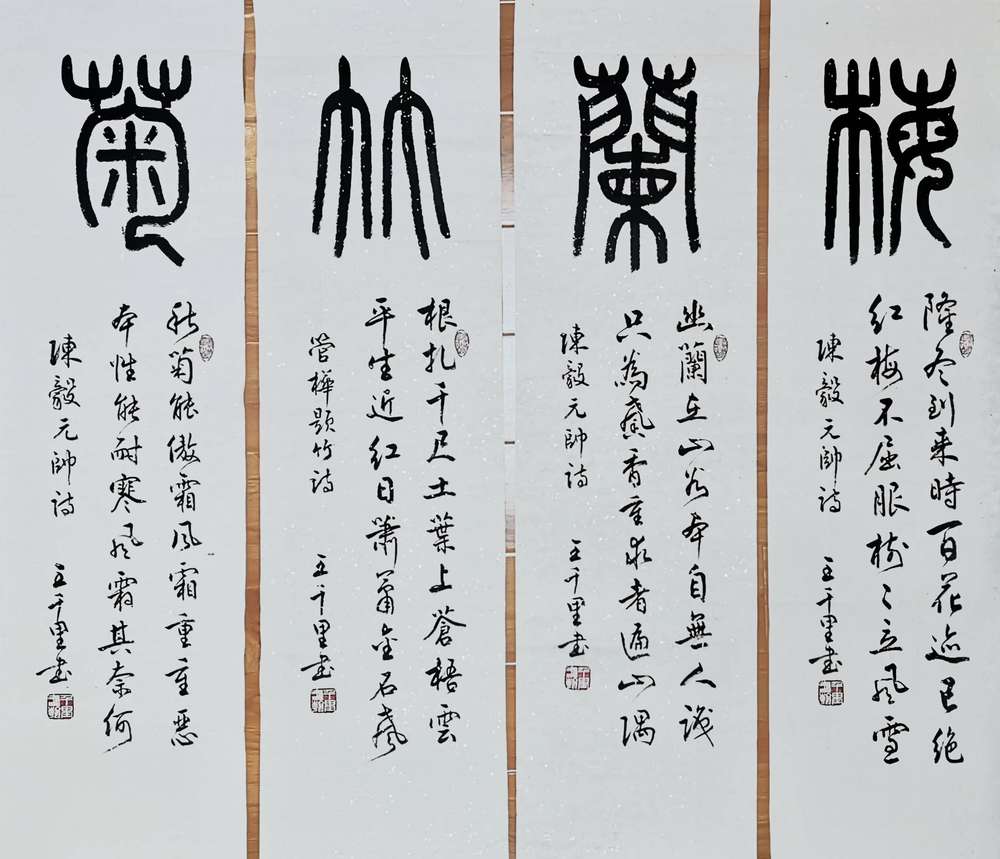 梅
隆冬到来時百花迹已绝
红梅不屈服树々立风雪
陳毅元帥詩 王千里书
蘭
幽蘭在山谷本自無人識
只為馨香重求者遍山隅
陳毅元帥詩 王千里书
竹
根扎千尺土葉上蒼梧雲
平生近红日萧萧金石声
管樺題竹詩 王千里书
菊
秋菊能傲霜風霜重重惡
本性能耐寒风霜其奈何
陳毅元帥詩 王千里书